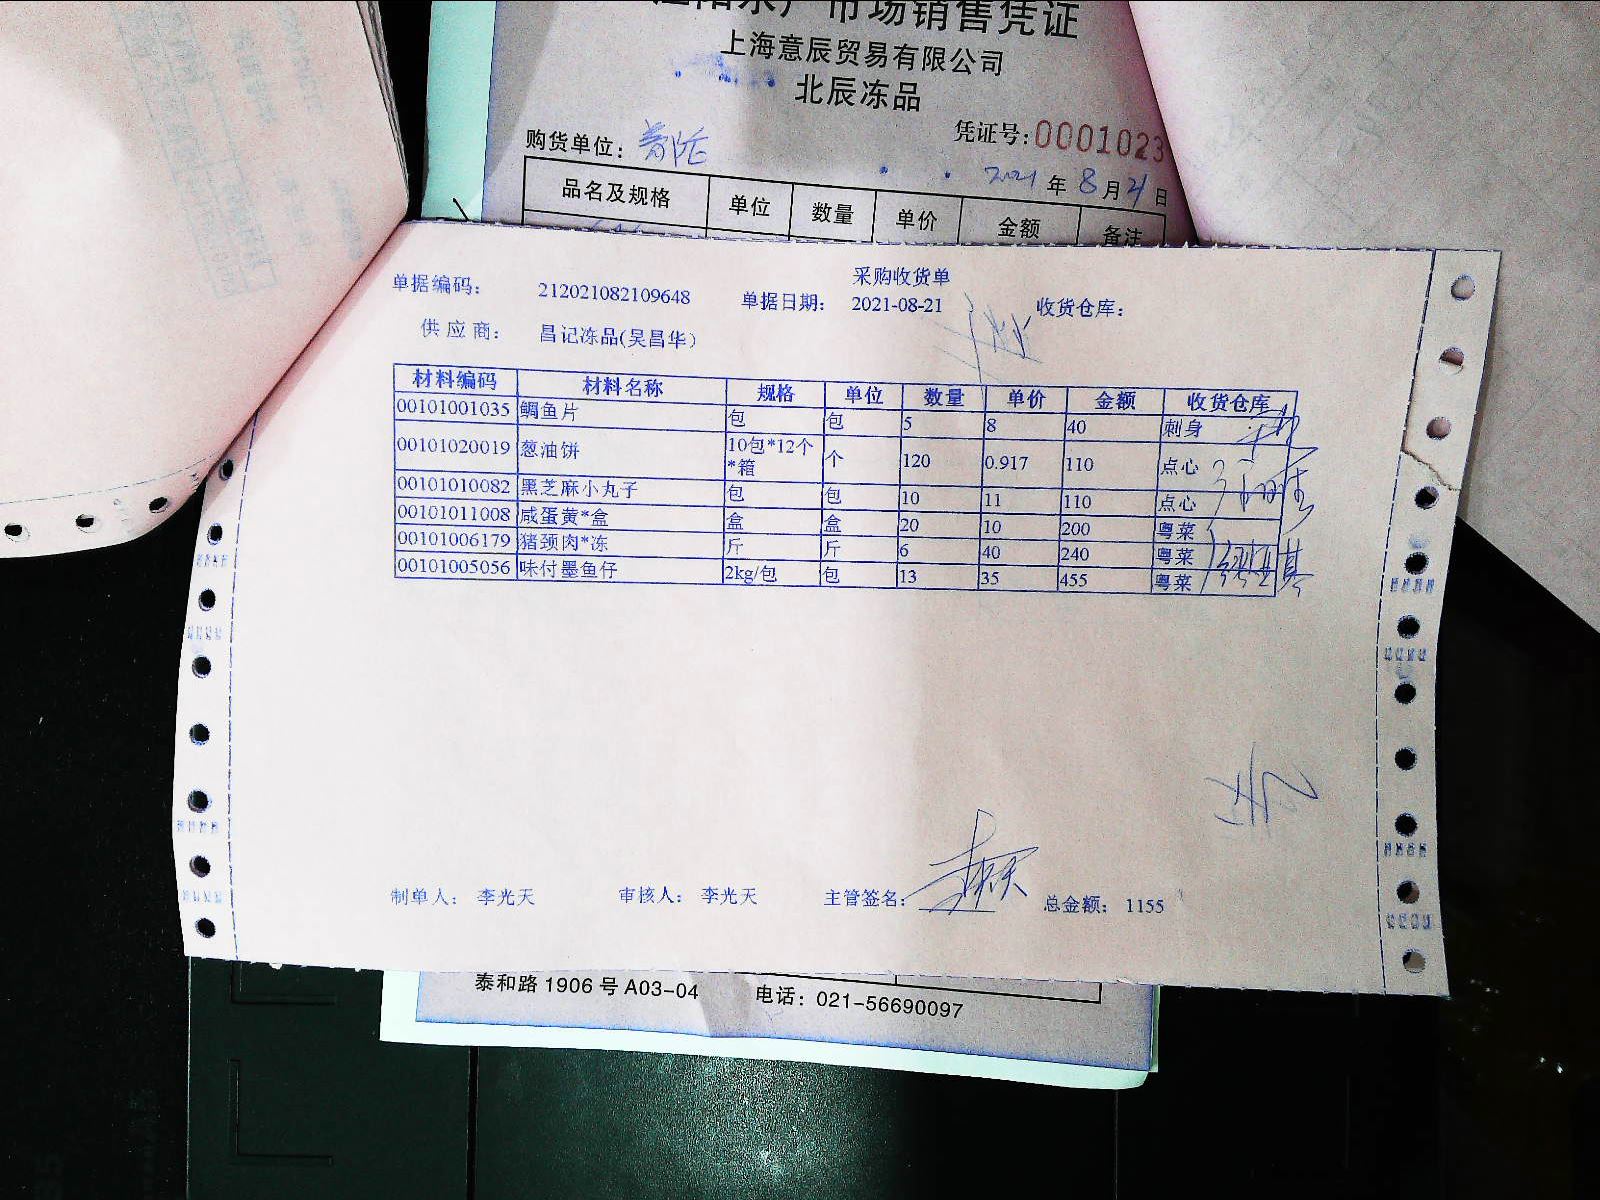 市场销售凭证
上海意辰贸易有限公司
北辰冻品
凭证号:0001023
购货单位:
2021年8月21日
品名及规格 单位 数量 单价 金额 备注
采购收货单
单据编码: 212021082109648 单据日期: 2021-08-21 收货仓库:
供应商: 昌记冻品(吴昌华)
材料编码 材料名称 规格 单位 数量 单价 金额 收货仓库
00101001035 鲷鱼片 包 包 5 8 40 刺身
00101020019 葱油饼 10包*12个*箱 个 120 0.917 110 点心
00101010082 黑芝麻小丸子 包 包 10 11 110 点心
00101011008 咸蛋黄*盒 盒 盒 20 10 200 粤菜
00101006179 猪颈肉*冻 斤 斤 6 40 240 粤菜
00101005056 味付墨鱼仔 2kg/包 包 13 35 455 粤菜
制单人: 李光天 审核人: 李光天 主管签名: 总金额: 1155
泰和路1906号A03-04 电话: 021-56690097